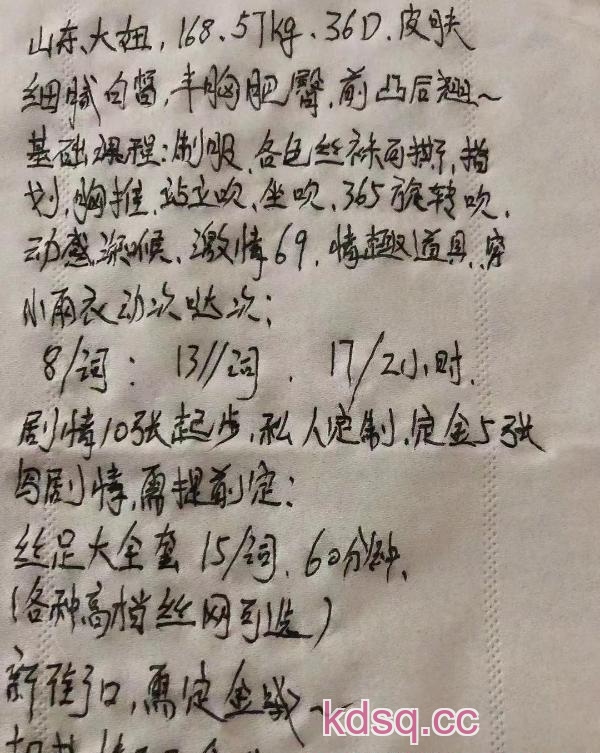 山东、大妞,168.57kg、36D.皮肤
细腻白皙,丰胸肥臀,前凸后翘~
基础课程:制服、各色丝袜可撕,指
划,胸推、站立吹、坐吹、365旋转吹、
动感深喉、激情69,情趣道具,穿
小雨衣动次哒次;
8/词: 13//词、17/2小时.
剧情10张起步,私人定制,定金5张
写剧情,需提前定:
丝足大全套 15/词、60分钟、
(各种高档丝网可选)
新街口,需定金
kdsq.cc